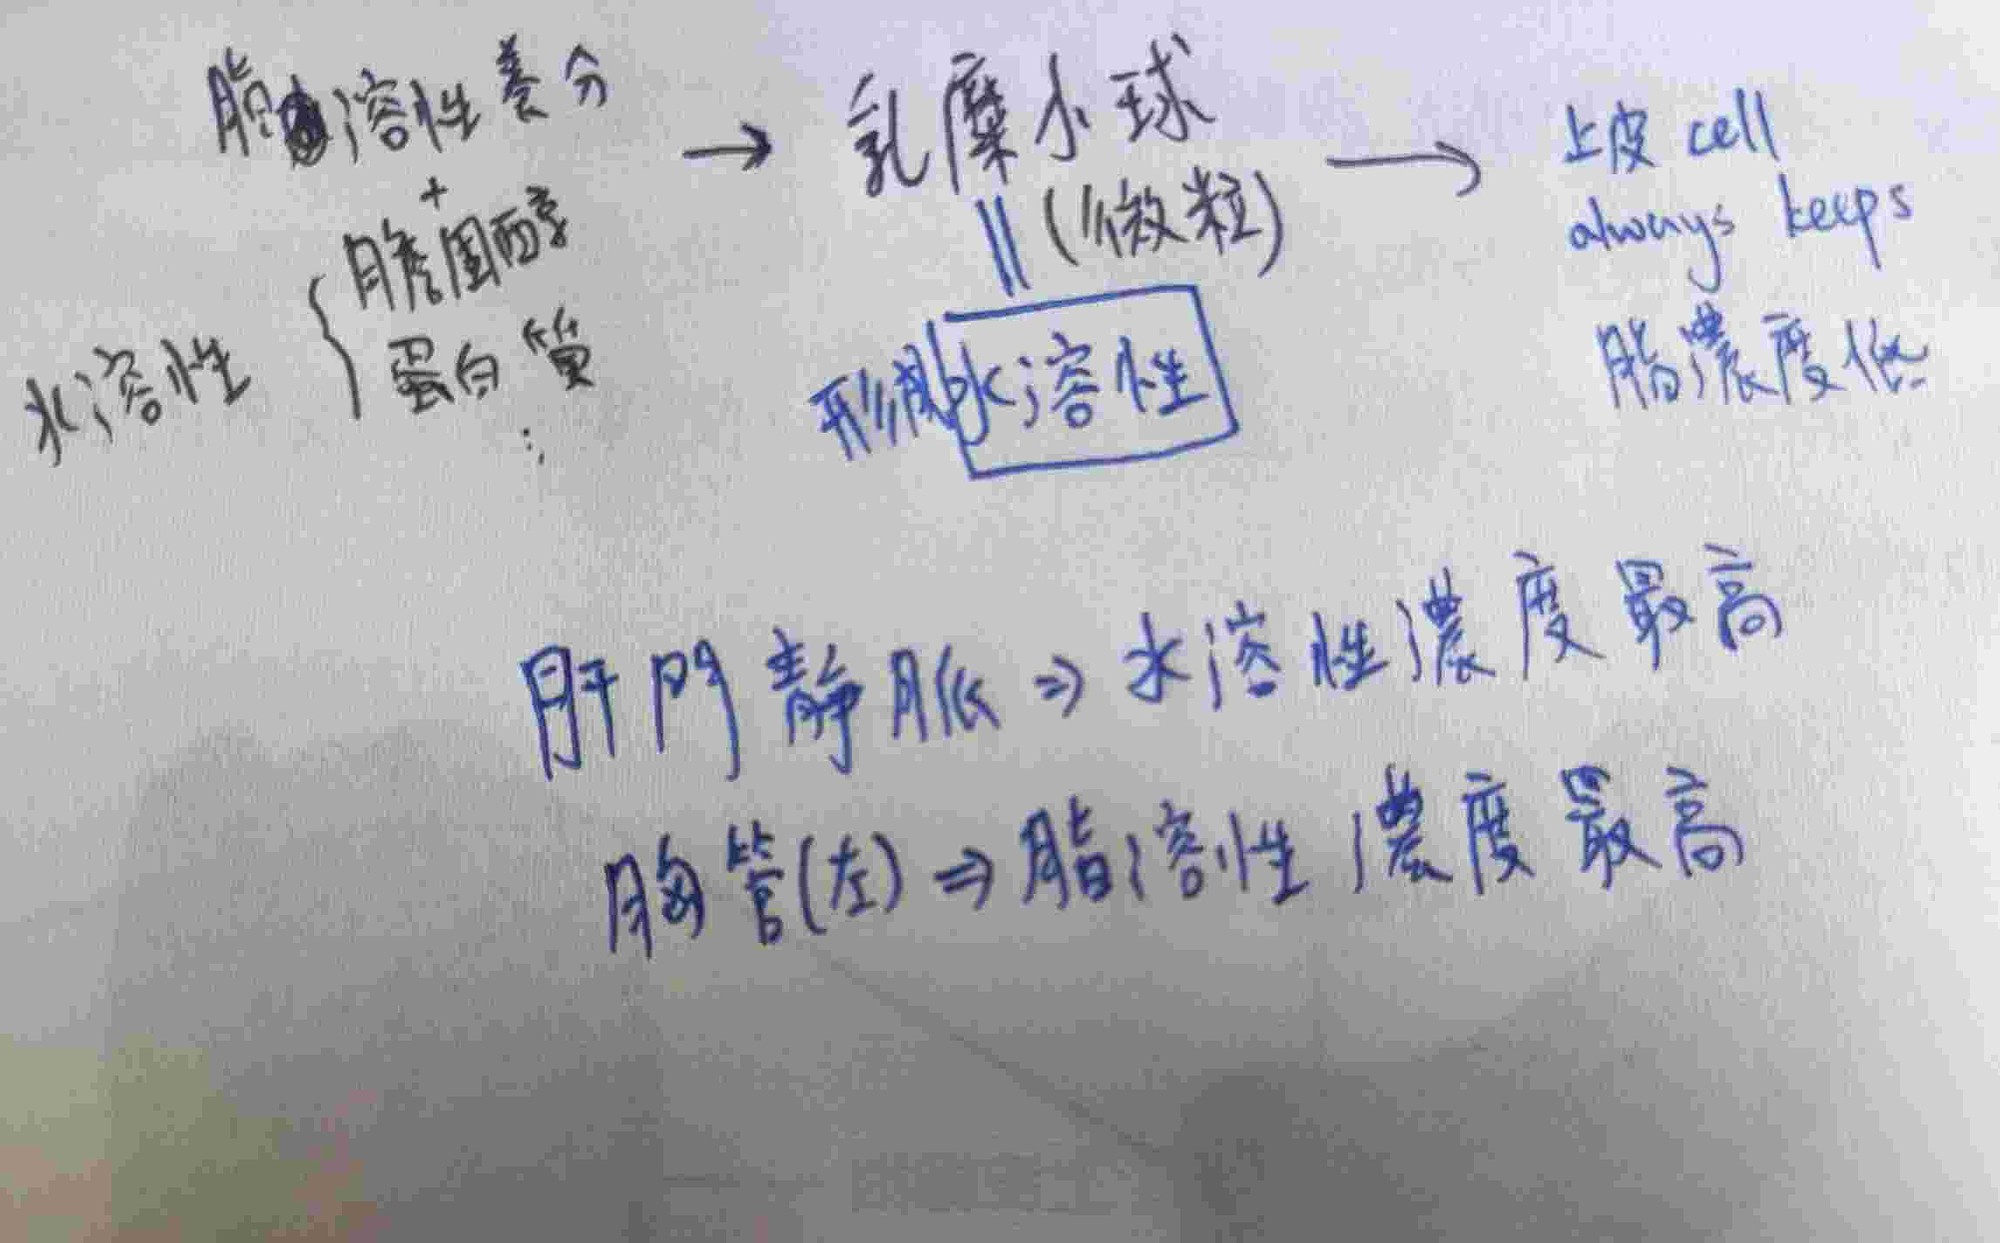 脂溶性養分
+
水溶性 { 膽固醇
蛋白質
⋮
→ 乳糜小球
(微粒)
||
形成水溶性
→ 上皮 cell
always keeps
脂濃度低
肝門靜脈 ⇒ 水溶性濃度最高
胸管(左) ⇒ 脂溶性濃度最高